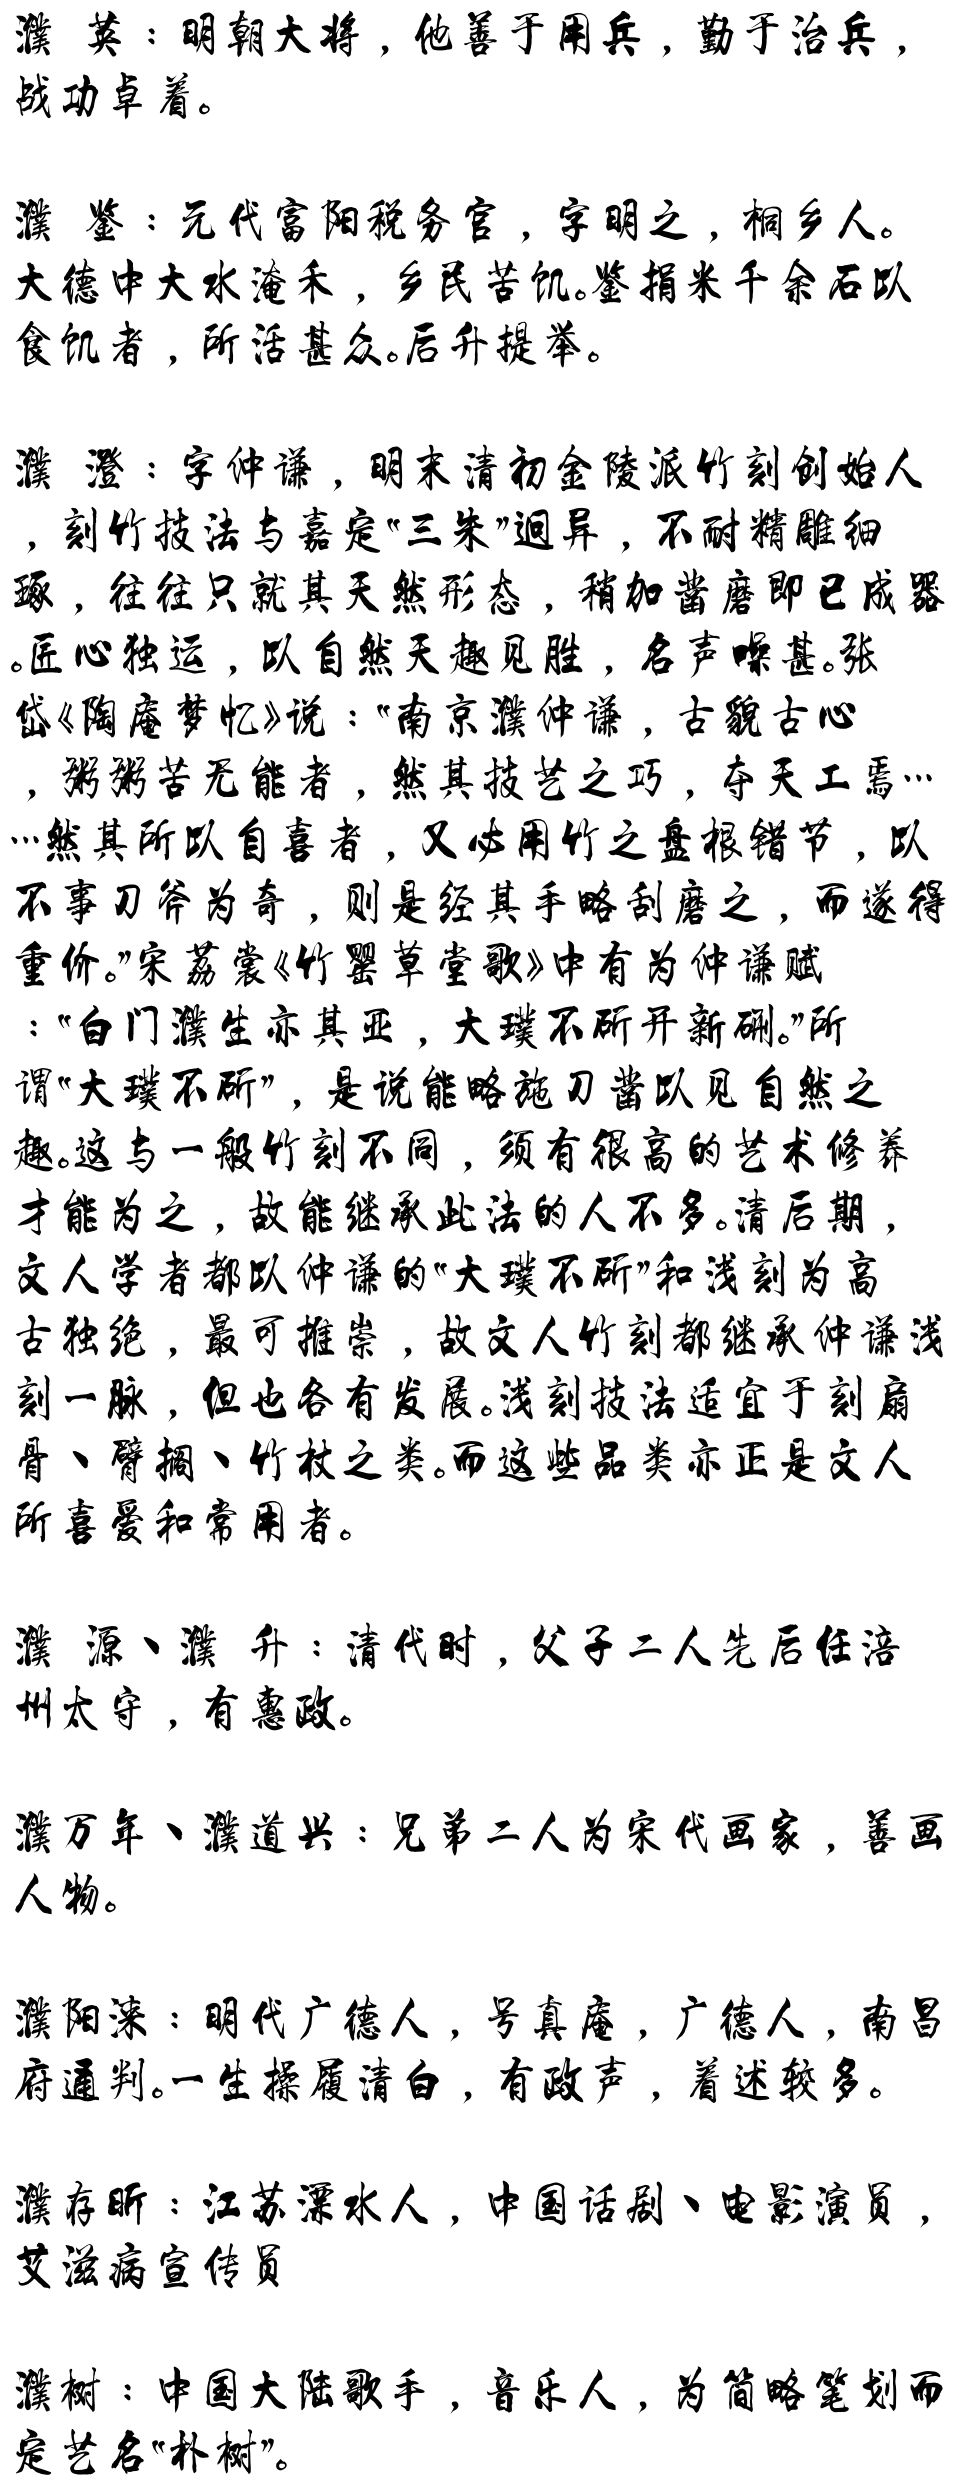 濮 英：明朝大将，他善于用兵，勤于治兵，
战功卓着。
濮 鉴：元代富阳税务官，字明之，桐乡人。
大德中大水淹禾，乡民苦饥。鉴捐米千余石以
食饥者，所活甚众。后升提举。
濮 澄：字仲谦，明末清初金陵派竹刻创始人
，刻竹技法与嘉定“三朱”迥异，不耐精雕细
琢，往往只就其天然形态，稍加凿磨即已成器
。匠心独运，以自然天趣见胜，名声噪甚。张
岱《陶庵梦忆》说：“南京濮仲谦，古貌古心
，粥粥苦无能者，然其技艺之巧，夺天工焉…
…然其所以自喜者，又必用竹之盘根错节，以
不事刀斧为奇，则是经其手略刮磨之，而遂得
重价。”宋荔裳《竹罂草堂歌》中有为仲谦赋
：“白门濮生亦其亚，大璞不斫开新硎。”所
谓“大璞不斫”，是说能略施刀凿以见自然之
趣。这与一般竹刻不同，须有很高的艺术修养
才能为之，故能继承此法的人不多。清后期，
文人学者都以仲谦的“大璞不斫”和浅刻为高
古独绝，最可推崇，故文人竹刻都继承仲谦浅
刻一脉，但也各有发展。浅刻技法适宜于刻扇
骨、臂搁、竹杖之类。而这些品类亦正是文人
所喜爱和常用者。
濮 源、濮 升：清代时，父子二人先后任涪
州太守，有惠政。
濮万年、濮道兴：兄弟二人为宋代画家，善画
人物。
濮阳涞：明代广德人，号真庵，广德人，南昌
府通判。一生操履清白，有政声，着述较多。
濮存昕：江苏溧水人，中国话剧、电影演员，
艾滋病宣传员
濮树：中国大陆歌手，音乐人，为简略笔划而
定艺名“朴树”。